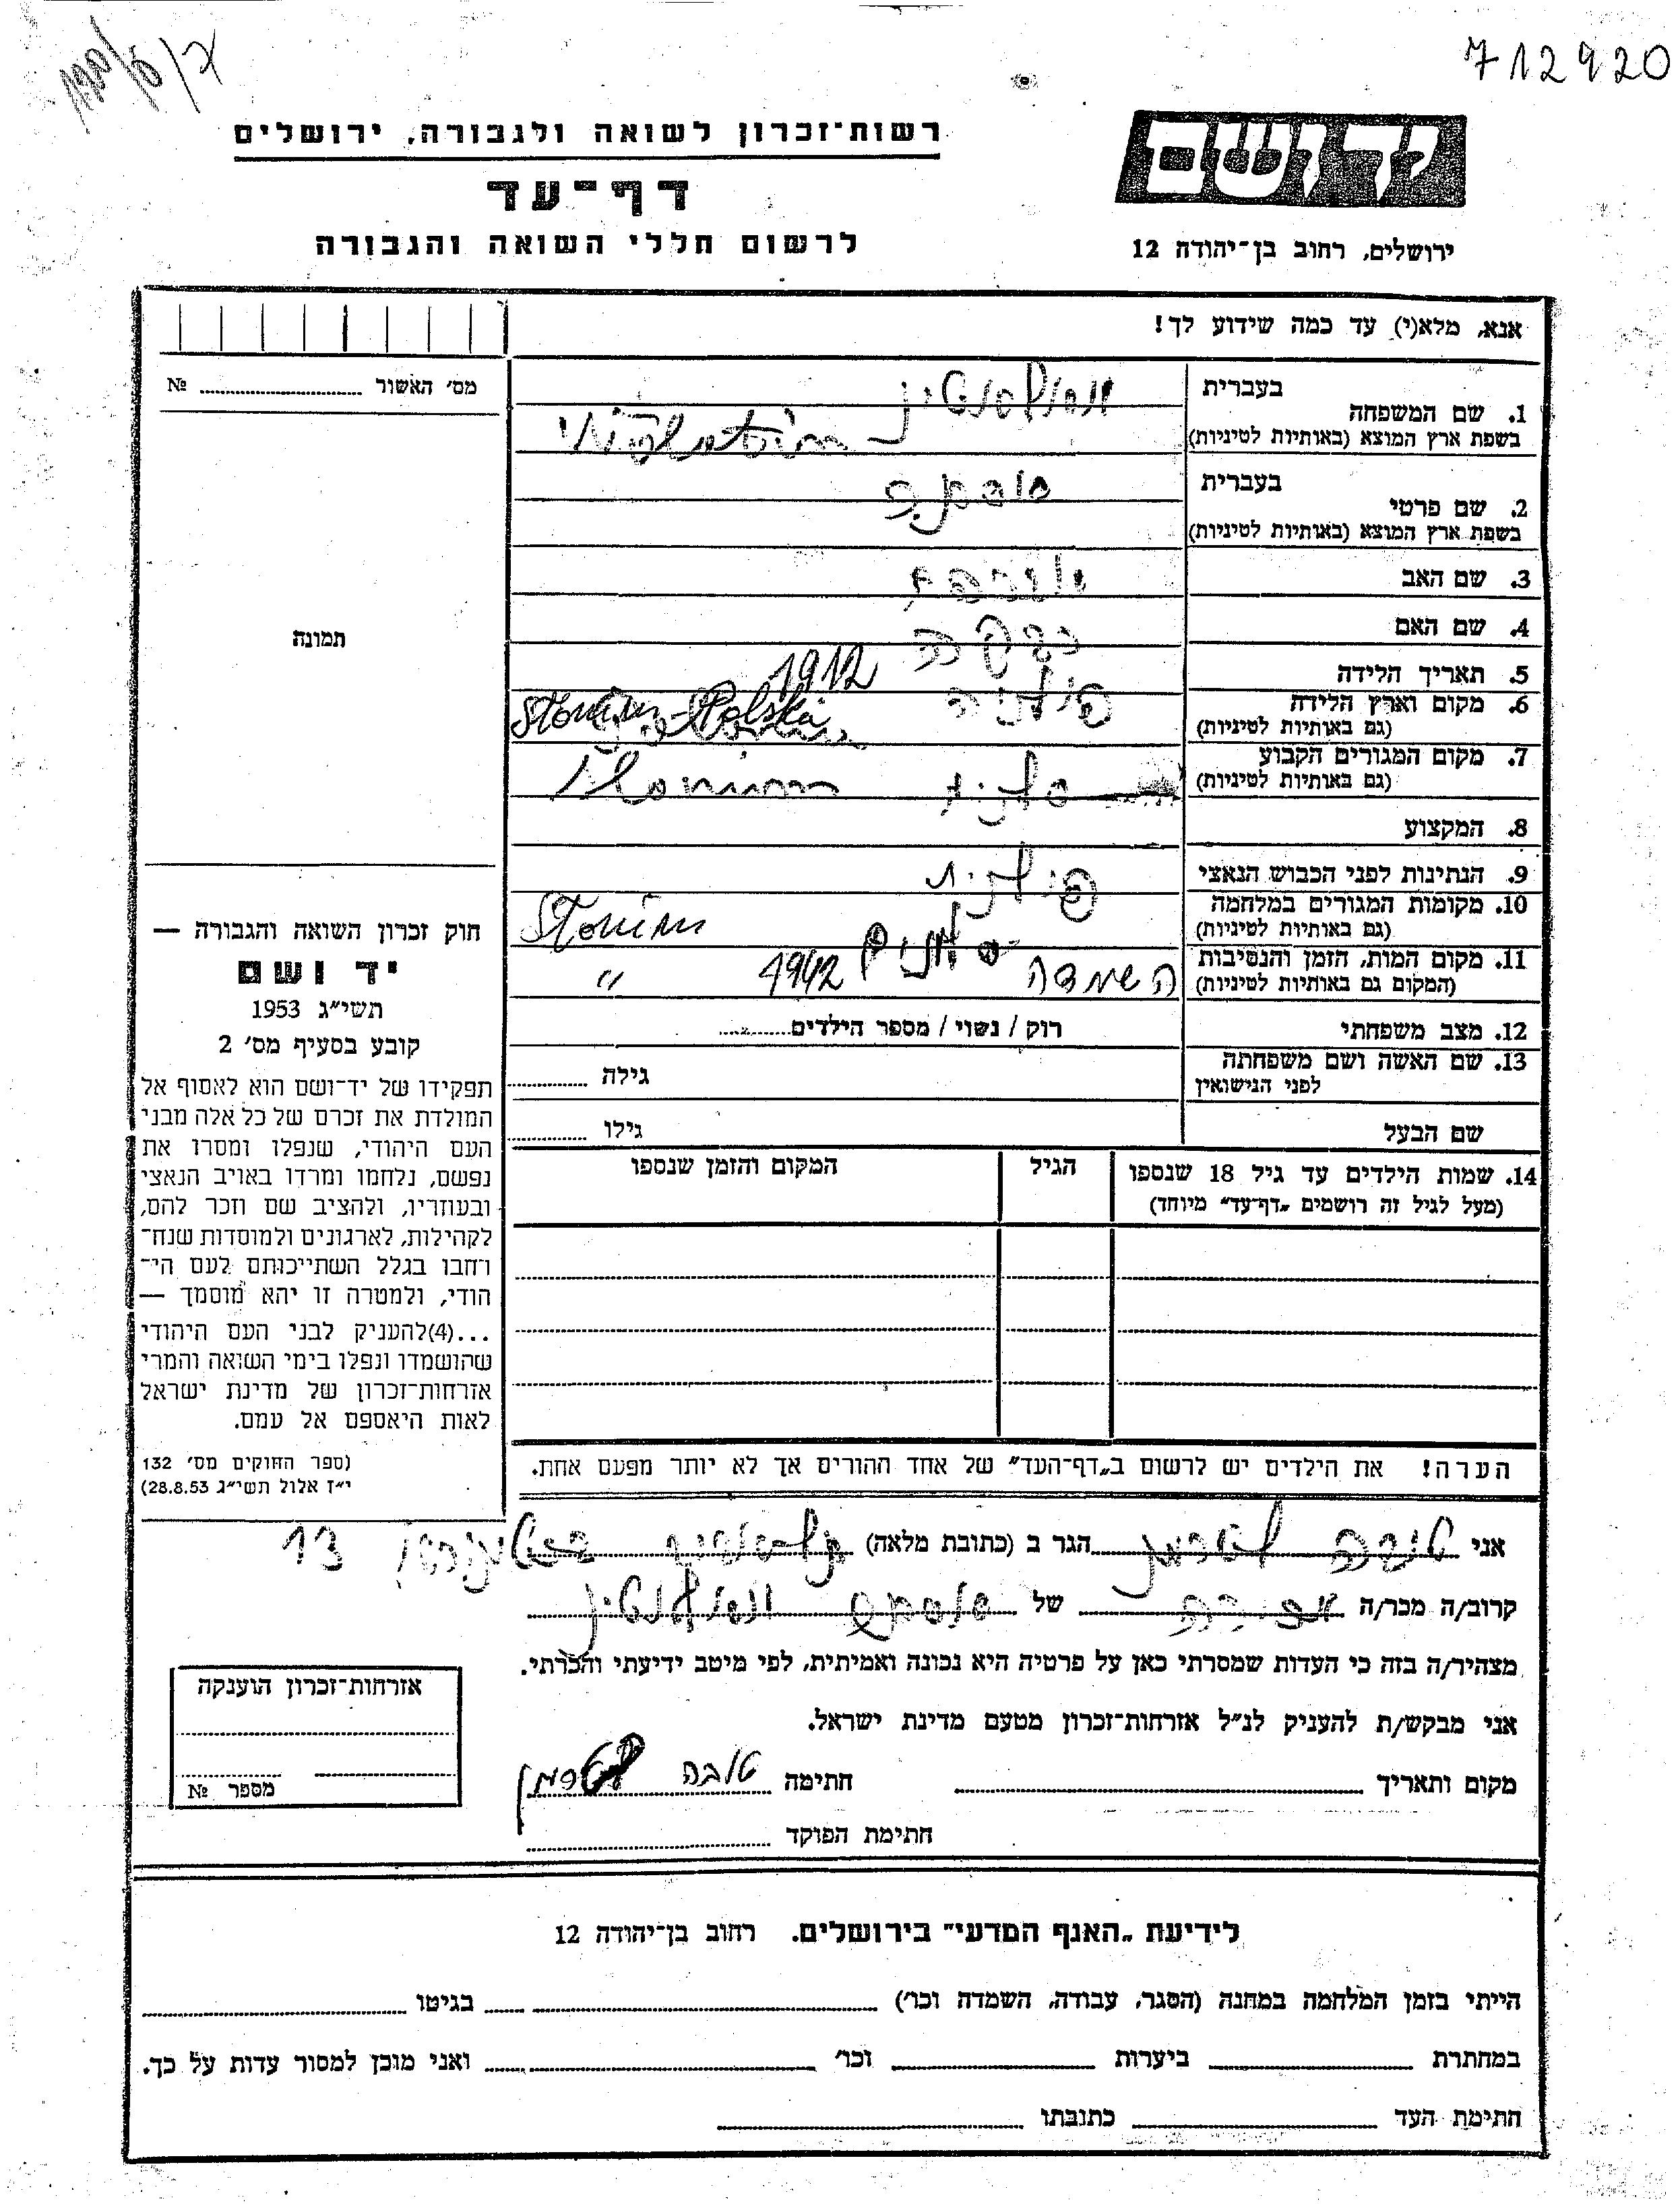 712920
רשות־זכרון לשואה ולגבורה, ירושלים
יד ושם
דף־עד
לרשום חללי השואה והגבורה
ירושלים, רחוב בן־יהודה 12
אנא, מלא(י) עד כמה שידוע לך!
מס׳ האשור № 
בעברית
1. שם המשפחה
בשפת ארץ המוצא (באותיות לטיניות)
בעברית
2. שם פרטי
בשפת ארץ המוצא (באותיות לטיניות)
3. שם האב
4. שם האם רבקה
5. תאריך הלידה 1912
6. מקום וארץ הלידה פולניה Slonim-Polska
(גם באותיות לטיניות)
7. מקום המגורים הקבוע Slonim
(גם באותיות לטיניות)
8. המקצוע
9. הנתינות לפני הכבוש הנאצי פולנית
10. מקומות המגורים במלחמה סלונים Slonim
(גם באותיות לטיניות)
11. מקום המות, הזמן והנסיבות השמדה 1942 "
(המקום גם באותיות לטיניות)
12. מצב משפחתי רוק / נשוי / מספר הילדים
13. שם האשה ושם משפחתה גילה
לפני הנישואין
שם הבעל גילו
14. שמות הילדים עד גיל 18 שנספו הגיל המקום והזמן שנספו
(מעל לגיל זה רושמים „דף־עד" מיוחד)
הערה! את הילדים יש לרשום ב„דף־העד" של אחד ההורים אך לא יותר מפעם אחת.
תמונה
חוק זכרון השואה והגבורה —
יד ושם
תשי״ג 1953
קובע בסעיף מס׳ 2
תפקידו של יד־ושם הוא לאסוף אל
המולדת את זכרם של כל אלה מבני
העם היהודי, שנפלו ומסרו את
נפשם, נלחמו ומרדו באויב הנאצי
ובעוזריו, ולהציב שם וזכר להם,
לקהילות, לארגונים ולמוסדות שנח־
רחבו בגלל השתייכותם לעם הי־
הודי, ולמטרה זו יהא מוסמך —
...(4)להעניק לבני העם היהודי
שהושמדו ונפלו בימי השואה והמרי
אזרחות־זכרון של מדינת ישראל
לאות היאספם אל עמם.
(ספר החוקים מס׳ 132
י״ז אלול תשי״ג 28.8.53)
אני טובה הגר ב (כתובת מלאה) 13
קרוב/ה מכר/ה של
מצהיר/ה בזה כי העדות שמסרתי כאן על פרטיה היא נכונה ואמיתית, לפי מיטב ידיעתי והכרתי.
אני מבקש/ת להעניק לנ״ל אזרחות־זכרון מטעם מדינת ישראל.
מקום ותאריך חתימה טובה
חתימת הפוקד
אזרחות־זכרון הוענקה
מספר №
לידיעת „האגף המדעי" בירושלים. רחוב בן־יהודה 12
הייתי בזמן המלחמה במחנה (הסגר, עבודה, השמדה וכו׳) בגיטו
במחתרת ביערות וכו׳ ואני מוכן למסור עדות על כך.
חתימת העד כתובתו